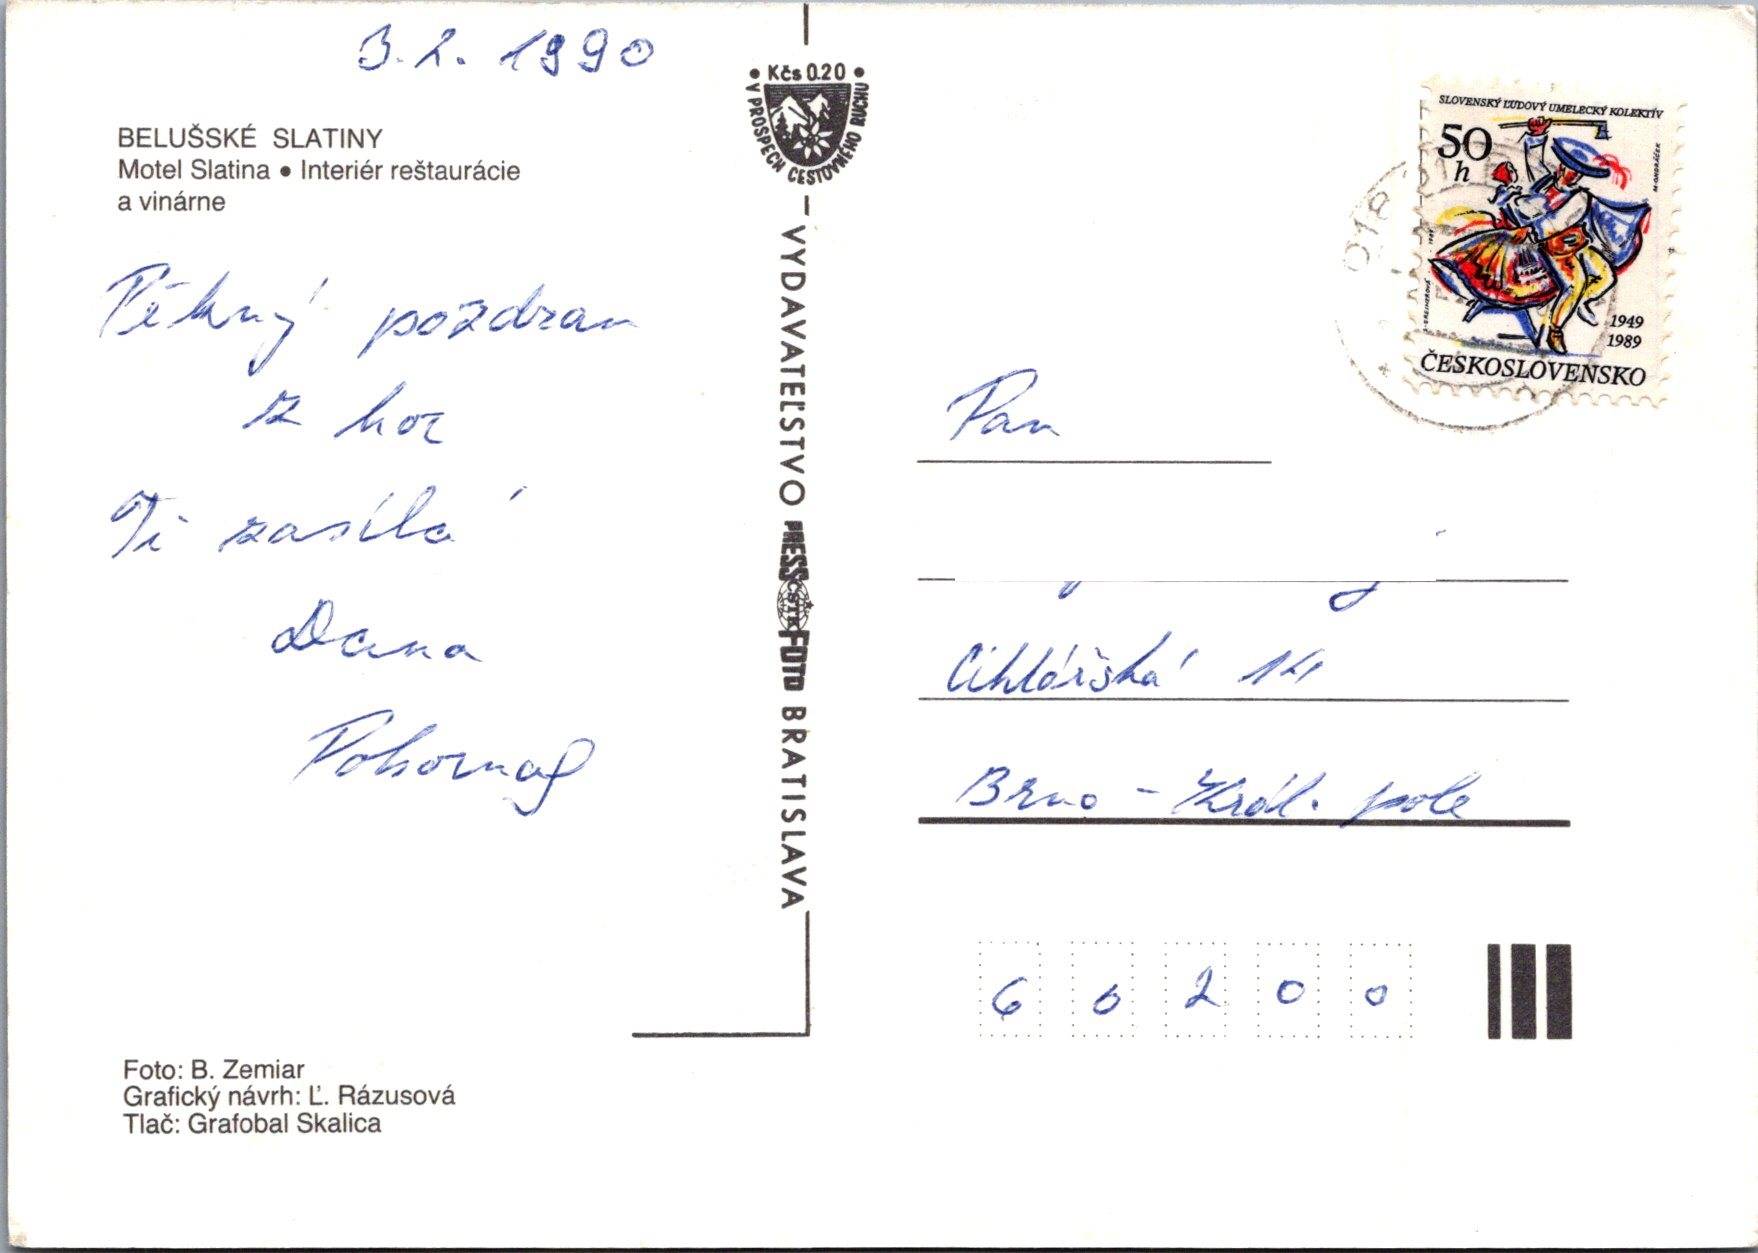 3.2.1990
BELUŠSKÉ SLATINY
Motel Slatina • Interiér reštaurácie
a vinárne
Pěkný pozdrav
z hor
Ti zasílá
Dana
Foto: B. Zemiar
Grafický návrh: Ľ. Rázusová
Tlač: Grafobal Skalica
• Kčs 0.20 •
V PROSPECH CESTOVNÉHO RUCHU
VYDAVATEĽSTVO PRESSFOTO BRATISLAVA
ČSTK
SLOVENSKÝ ĽUDOVÝ UMELECKÝ KOLEKTÍV
50
h
M. ONDRÁČEK
1949
1989
ČESKOSLOVENSKO
Pan
Cihlářská 14
Brno - Král. pole
6 0 2 0 0